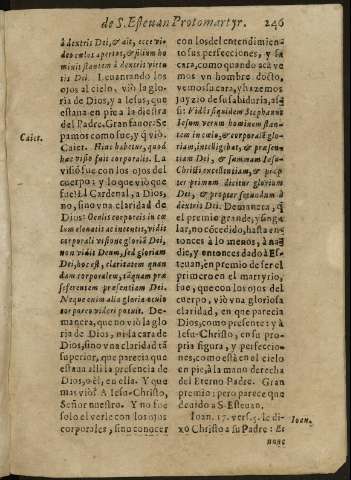 de S. Esteuan Protomartyr. 246
à dextris Dei, & ait, ecce vi-
deo cœlos apertos, & filium ho
minis stantem à dextris virtu
tis Dei. Leuantando los
ojos al cielo, vió la glo-
ria de Dios, y a Iesus, que
estaua en pie a la diestra
del Padre. Gran fauor. Se
pamos como fue, y q̃ vió.
Caiet.
Caiet. Hinc habetur, quod
hæc visio fuit corporalis. La
visió fue con los ojos del
cuerpo: y lo que vió que
fue? El Cardenal, a Dios,
no, sino vna claridad de
Dios: Oculis corporeis in cœ
lum eleuatis ac intentis, vidit
corporali visione gloriã Dei,
non vidit Deum, sed gloriam
Dei, hoc est, claritatem quan
dam corporalem, tãquam præ
seferentem præsentiam Dei.
Neque enim alia gloria oculo
corporeo videri potuit. De-
manera, que no vió la glo
ria de Dios, ni la cara de
Dios, sino vna claridad tã
superior, que parecia que
estaua alli la presencia de
Dios, ó èl, en ella. Y que
mas vió? A Iesu-Christo,
Señor nuestro. Y no fue
solo el verle con los ojos
corporales, sino conocer
con los del entendimien
to sus perfecciones, y sa
cara, como quando acà ve
mos vn hombre docto,
vemos su cara, y hazemos
juyzio de su sabiduria, assi
fue: Vidit siquidem Stephanus
Iesum verum hominem stan-
tem in cœlo, & corporale glo-
riam, intelligebat, & præsen
tiam Dei, & summam Iesu-
Christi excellentiam, & prop
ter primum dicitur gloriam
Dei, & propter secundum à
dextris Dei. Demanera, q̃
el premio grande, y singu
lar, no cócedido, hasta en
tonces a lo menos, à na-
die, y entonces dado à Es-
teuan, en premio de ser el
primero en el martyrio,
fue, que con los ojos del
cuerpo, vió vna gloriosa
claridad, en que parecia
Dios, como presente: y à
Iesu-Christo, en su pro-
pria figura, y perfeccio-
nes, como està en el cielo
en pie, à la mano derecha
del Eterno Padre. Gran
premio; pero parece que
deuido a S. Esteuan.
Ioan. 17. vers. 5. le di-
Ioan.
xo Christo a su Padre: Et
nunc